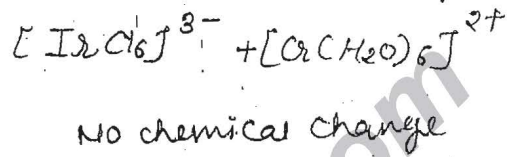 [IrCl6]3- + [Cr(H2O)6]2+
No chemical change